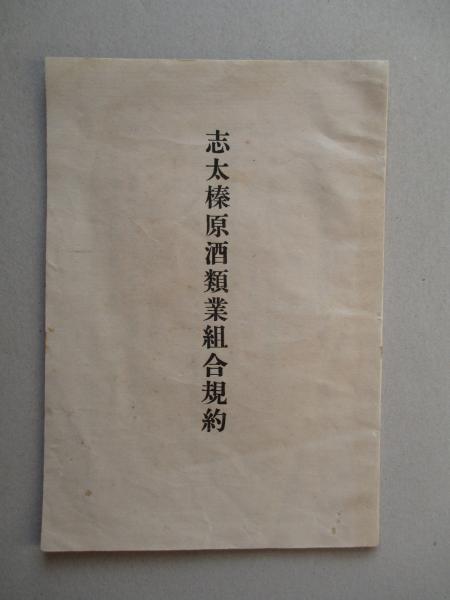 志太榛原酒類業組合規約